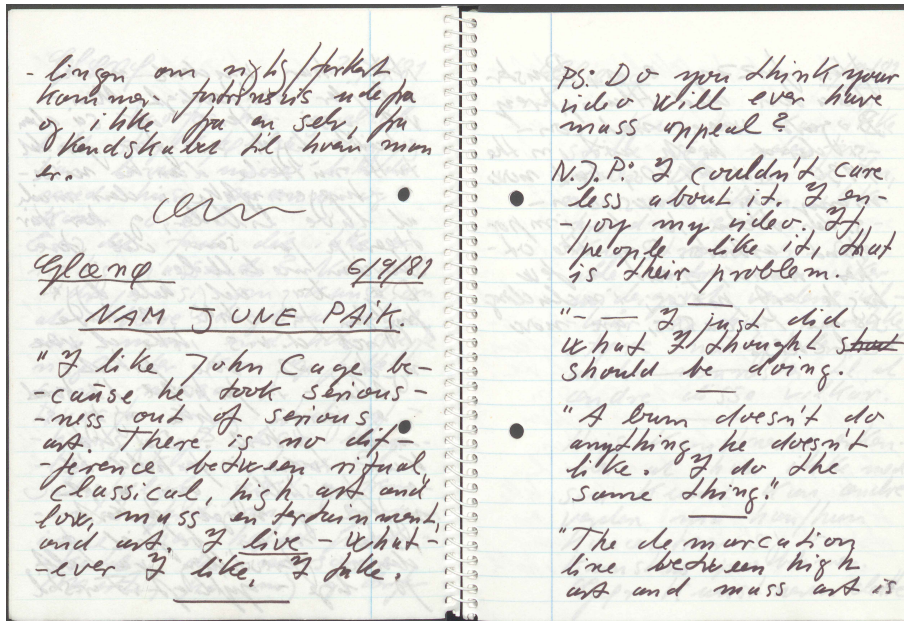 -lingen om rigtig/forkert
kommer fortrinsvis udefra
og ikke fra en selv, fra
kendskabet til hvem man
er.
6/9/81
NAM JUNE PAIK.
"I like John Cage be-
-cause he took serious-
-ness out of serious
art. There is no dif-
-ference between ritual,
classical, high art and
low, mass entertainment,
and art. I live - what-
-ever I like, I take.
PS: Do you think your
video will ever have
mass appeal?
N.J.P: I couldn't care
less about it. I en-
-joy my video. If
people like it, that
is their problem.
"- — I just did
what I thought
should be doing.
"A bum doesn't do
anything he doesn't
like. I do the
same thing."
"The demarcation
line between high
art and mass art is